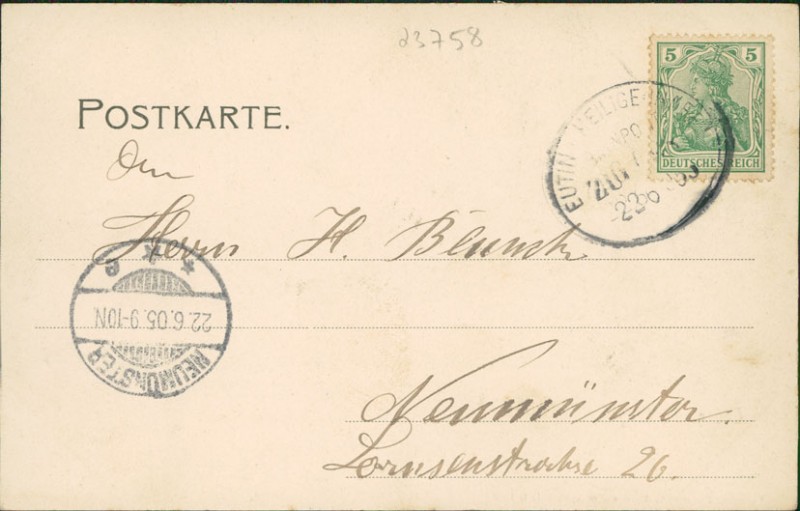 23758
5 5
DEUTSCHES REICH
EUTIN HEILIGEN
ZUG
22.6.05
POSTKARTE.
Den
Herrn H. Blunck
22.6.05.9-10N.
NEUMÜNSTER
* * e
Neumünster.
Lornsenstrasse 26.